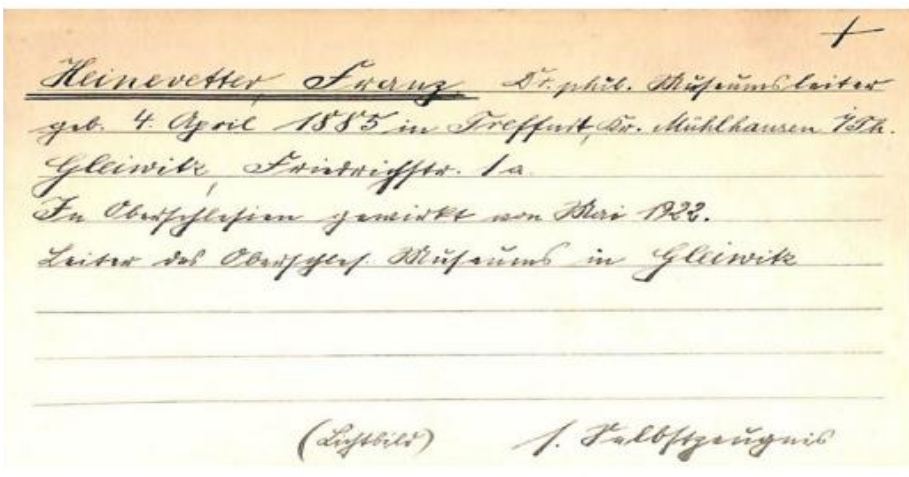 +
Heinevetter, Franz. Dr. phil. Museumsleiter
geb. 4. April 1885 in Treffurt, Kr. Mühlhausen i/Th.
Gleiwitz, Friedrichstr. 1a.
In Oberschlesien gewirkt von Mai 1922.
Leiter des Oberschles. Museums in Gleiwitz
(Lichtbild) s. Selbstzeugnis